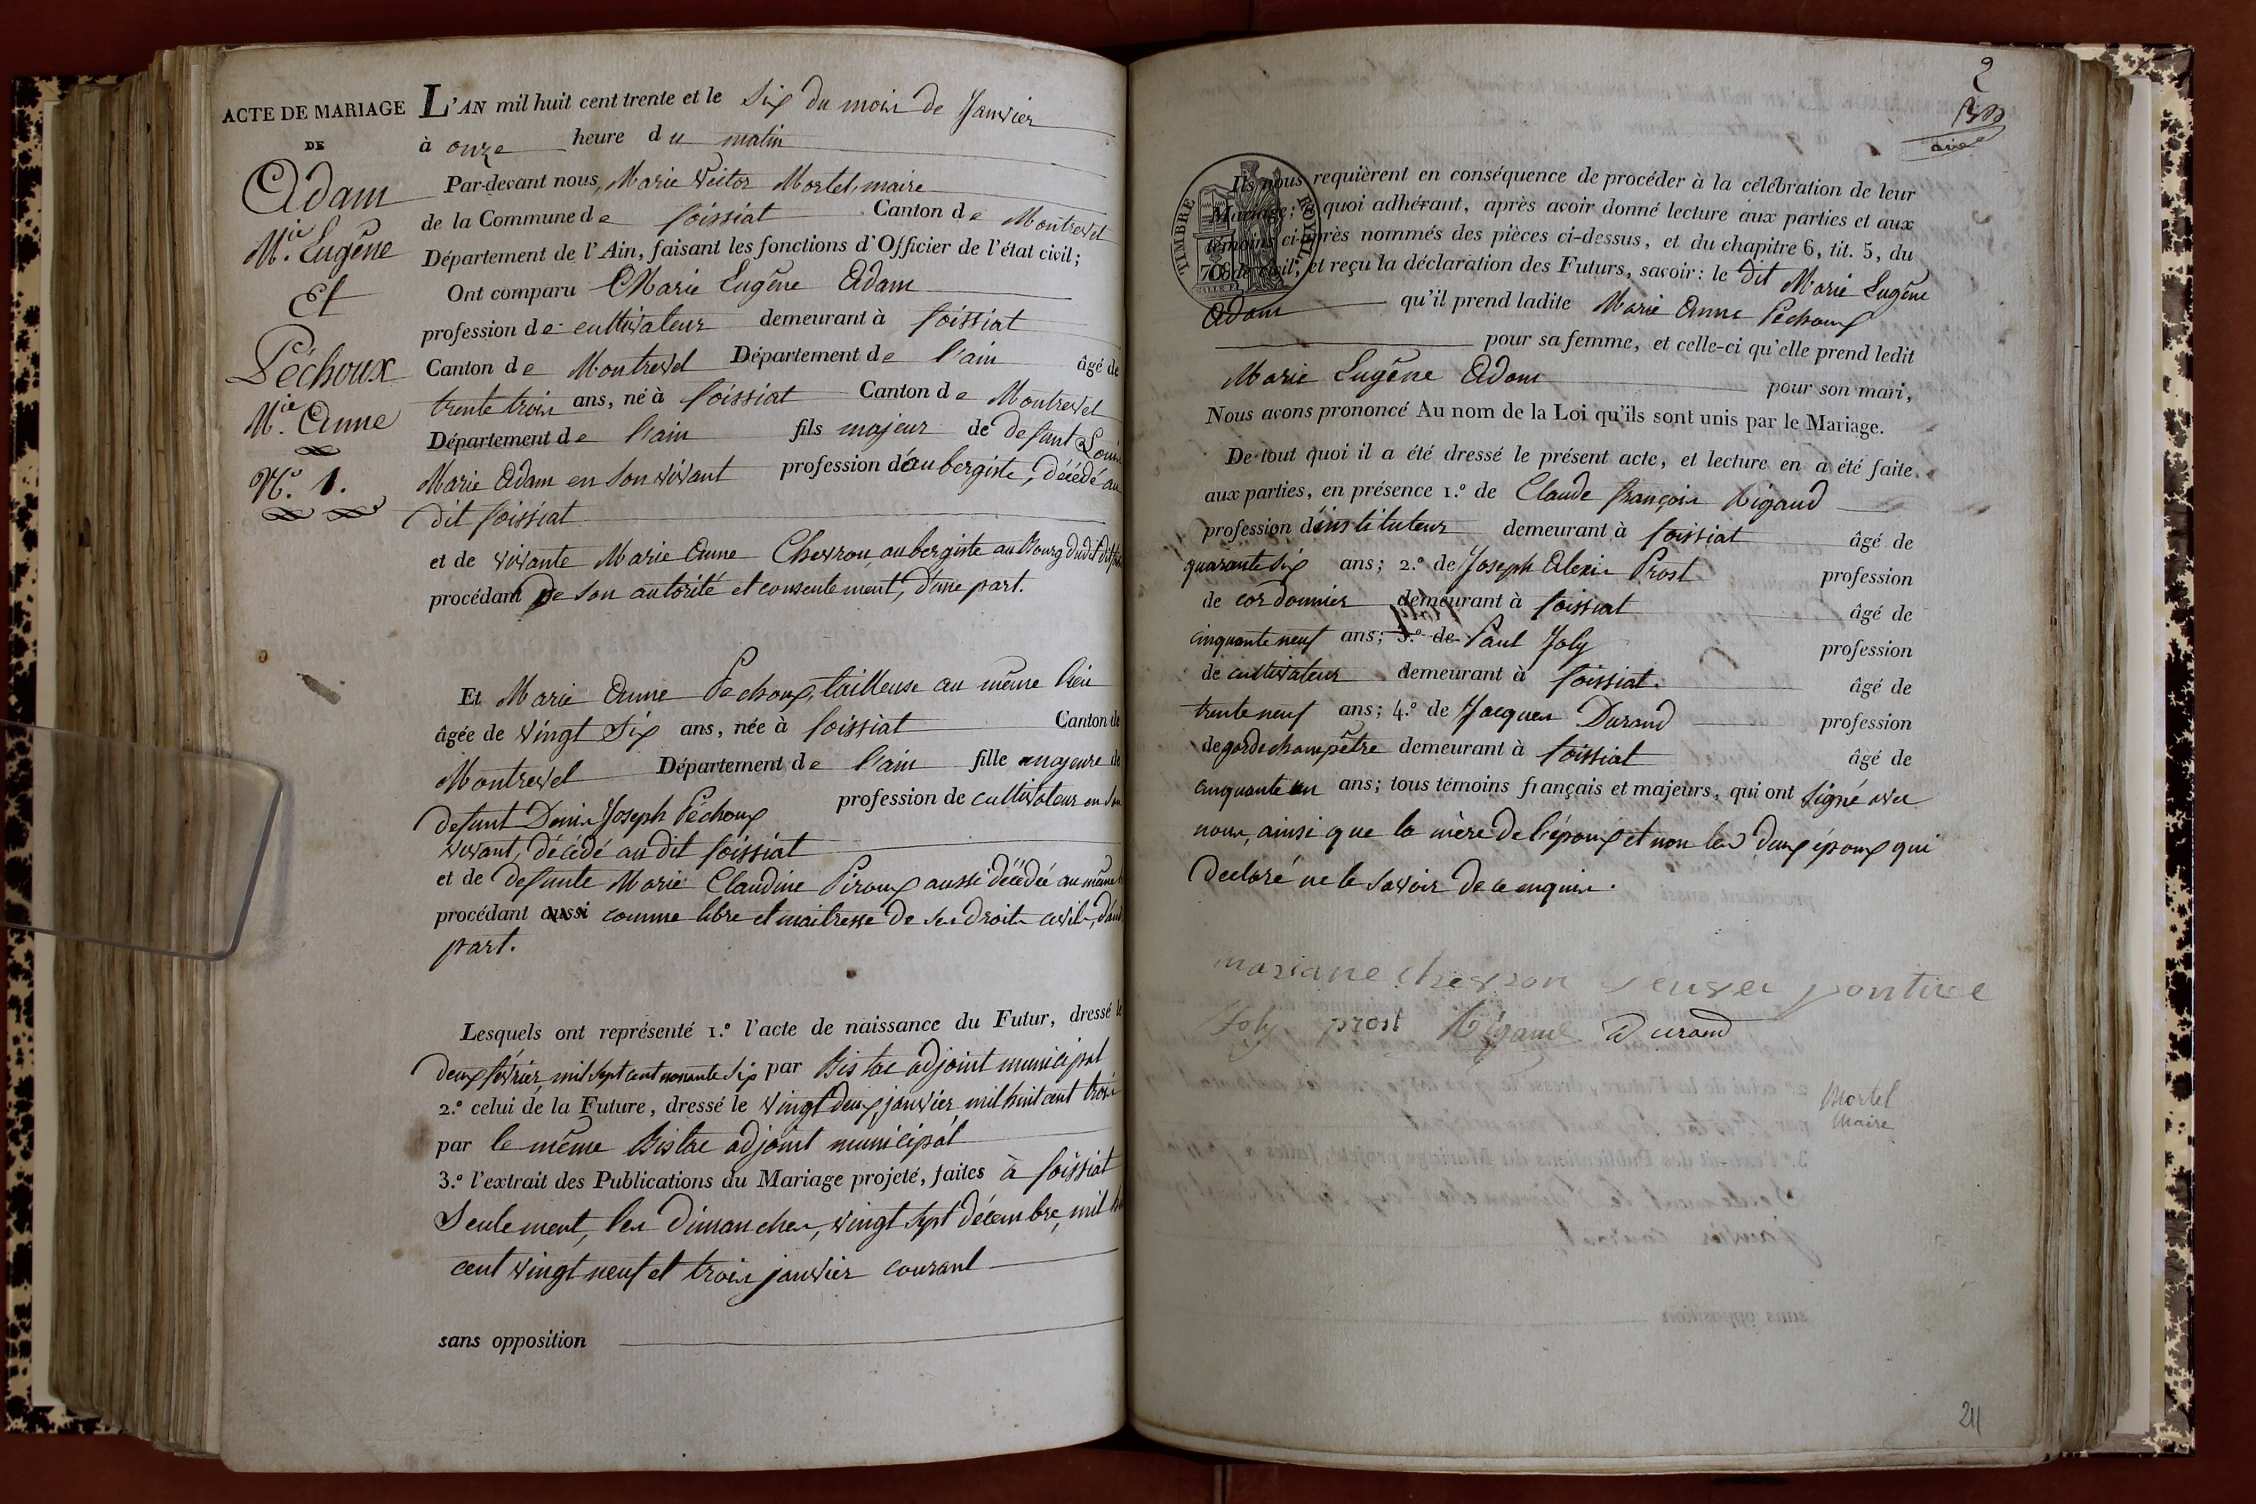 ACTE DE MARIAGE
DE
Adam
M.ie Eugêne
Et
Péchoux
M.ie Anne
N.o 1.
L'AN mil huit cent trente et le Six du mois de Janvier
à onze heure du matin
Par-devant nous, Marie Victor Mortel, maire
de la Commune de foissiat Canton de Montrevel
Département de l'Ain, faisant les fonctions d'Officier de l'état civil;
Ont comparu Marie Eugêne Adam
profession de cultivateur demeurant à foissiat
Canton de Montrevel Département de l'ain âgé de
trente trois ans, né à foissiat Canton de Montrevel
Département de l'ain fils majeur de defunt Louis
Marie Adam en son vivant profession d'aubergiste, décédé au
dit foissiat
et de vivante Marie Anne Chevron, aubergiste au Bourg dudit
procédant de son autorité et consentement, d'une part.
Et Marie Anne Pechoux, tailleuse au même lieu
âgée de vingt Six ans, née à foissiat Canton de
Montrevel Département de l'ain fille majeure de
defunt Denis Joseph Péchoux profession de cultivateur en son
vivant, décédé au dit foissiat
et de defunte Marie Claudine Piroux aussi décédée au même
procédant aussi comme libre et maitresse de ses droits civils, d'autre
part.
Lesquels ont représenté 1.o l'acte de naissance du Futur, dressé le
deux février, mil sept cent nonante six par Bistac adjoint municipal
2.o celui de la Future, dressé le vingt deux janvier mil huit cent trois
par le même Bistac adjoint municipal
3.o l'extrait des Publications du Mariage projeté, faites à foissiat
Seulement, les dimanches, vingt sept décembre, mil huit
cent vingt neuf et trois janvier courant
sans opposition
2
TIMBRE ROYAL
Ils nous requièrent en conséquence de procéder à la célébration de leur
Mariage; à quoi adhérant, après avoir donné lecture aux parties et aux
témoins ci-après nommés des pièces ci-dessus, et du chapitre 6, tit. 5, du
Code civil; et reçu la déclaration des Futurs, savoir: le dit Marie Eugêne
Adam qu'il prend ladite Marie Anne Pechoux
pour sa femme, et celle-ci qu'elle prend ledit
Marie Eugêne Adam pour son mari,
Nous avons prononcé Au nom de la Loi qu'ils sont unis par le Mariage.
De tout quoi il a été dressé le présent acte, et lecture en a été faite
aux parties, en présence 1.o de Claude françois Rigaud
profession d'instituteur demeurant à foissiat âgé de
quarante six ans; 2.o de Joseph Alexis Prost profession
de cordonnier demeurant à foissiat âgé de
cinquante neuf ans; 3.o de Paul Joly profession
de cultivateur demeurant à foissiat. âgé de
trente neuf ans; 4.o de Jacques Durand profession
de garde champêtre demeurant à foissiat âgé de
cinquante un ans; tous témoins français et majeurs, qui ont signé avec
nous, ainsi que la mère de l'époux et non les deux époux qui
declaré ne le savoir de ce enquis.
mariane chevron
Joly prost Rigaud Durand
Mortel
Maire
211